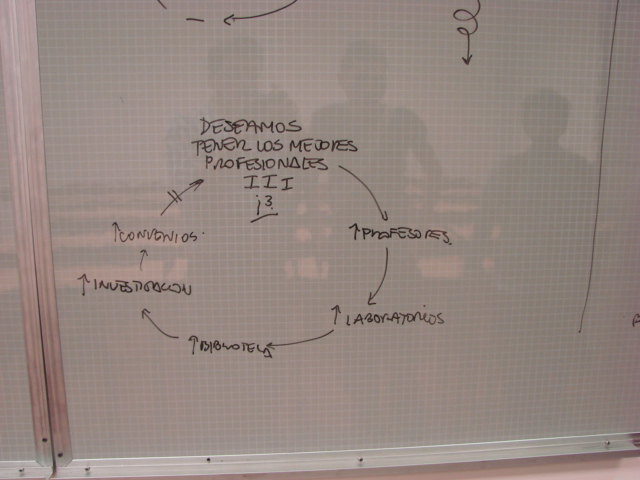 DESEAMOS
TENER LOS MEJORES
PROFESIONALES
III
i3
↑PROFESORES
↑LABORATORIOS
↑BIBLIOTECA
↑INVESTIGACION
↑CONVENIOS